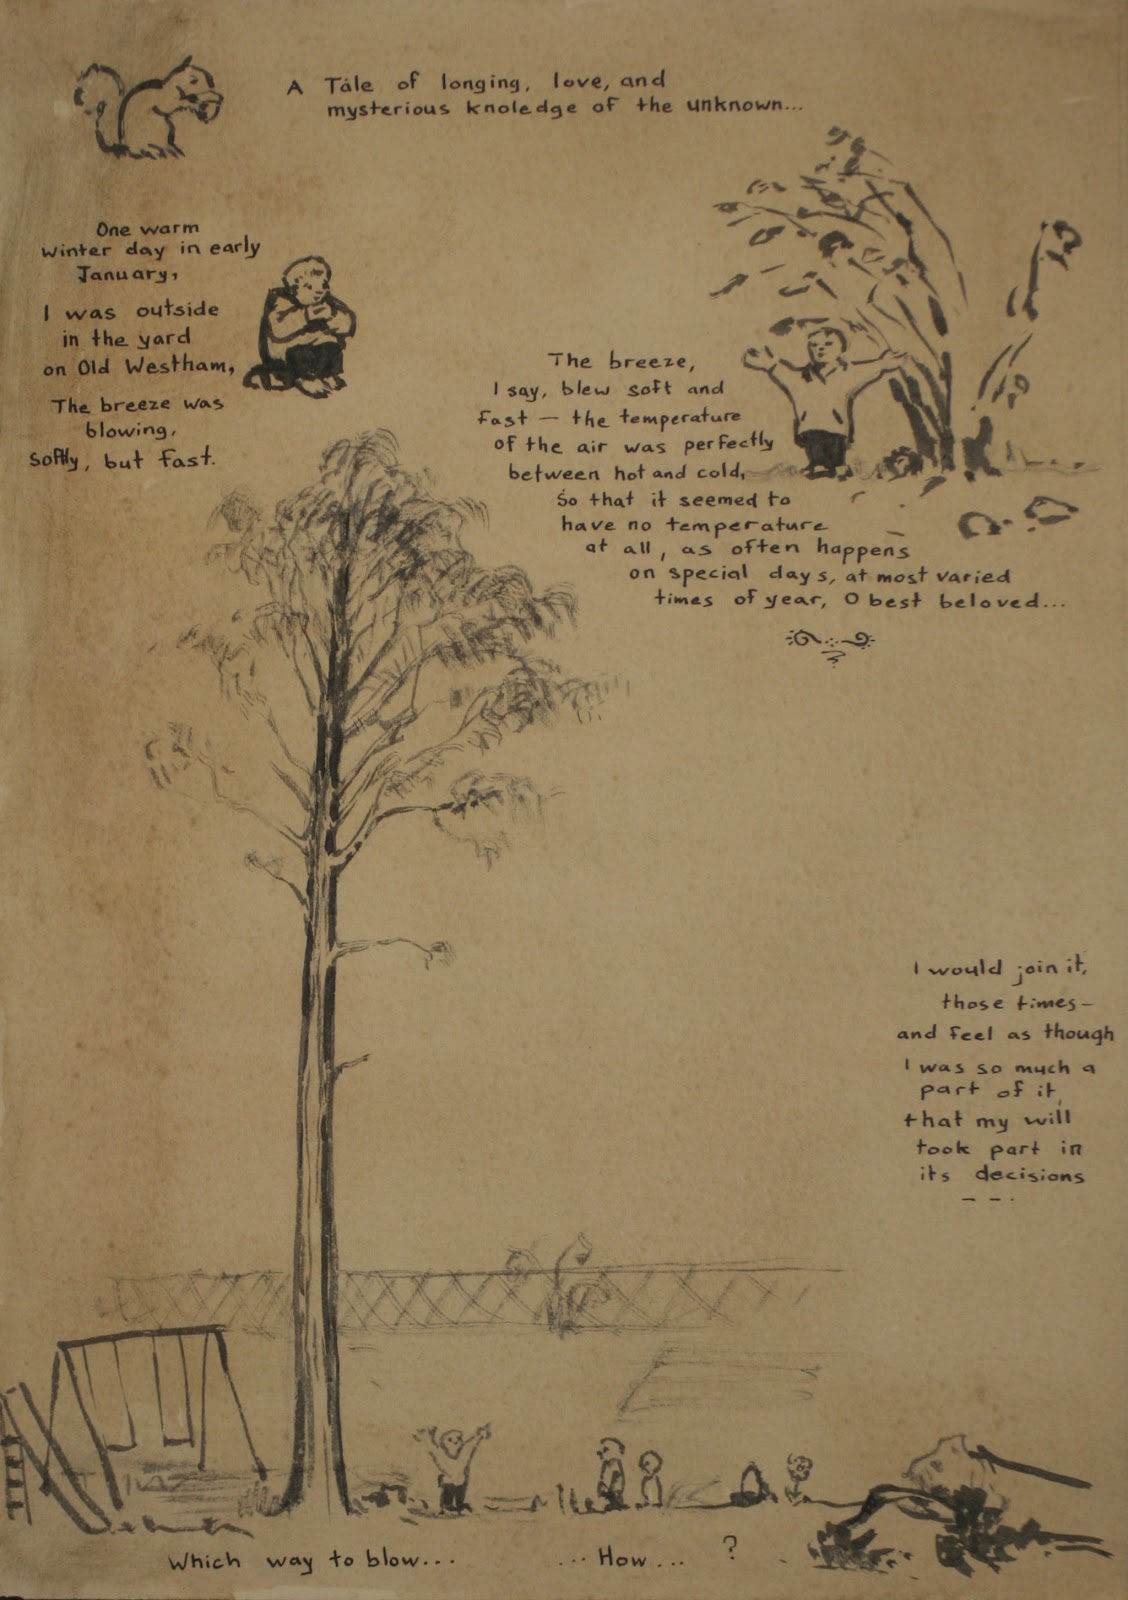 A Tale of longing, love, and
mysterious knoledge of the unknown...
One warm
winter day in early
January,
I was outside
in the yard
on Old Westham,
The breeze was
blowing,
softly, but fast.
The breeze,
I say, blew soft and
fast — the temperature
of the air was perfectly
between hot and cold,
So that it seemed to
have no temperature
at all, as often happens
on special days, at most varied
times of year, O best beloved...
I would join it,
those times —
and feel as though
I was so much a
part of it,
that my will
took part in
its decisions
- - .
Which way to blow... ... How... ?